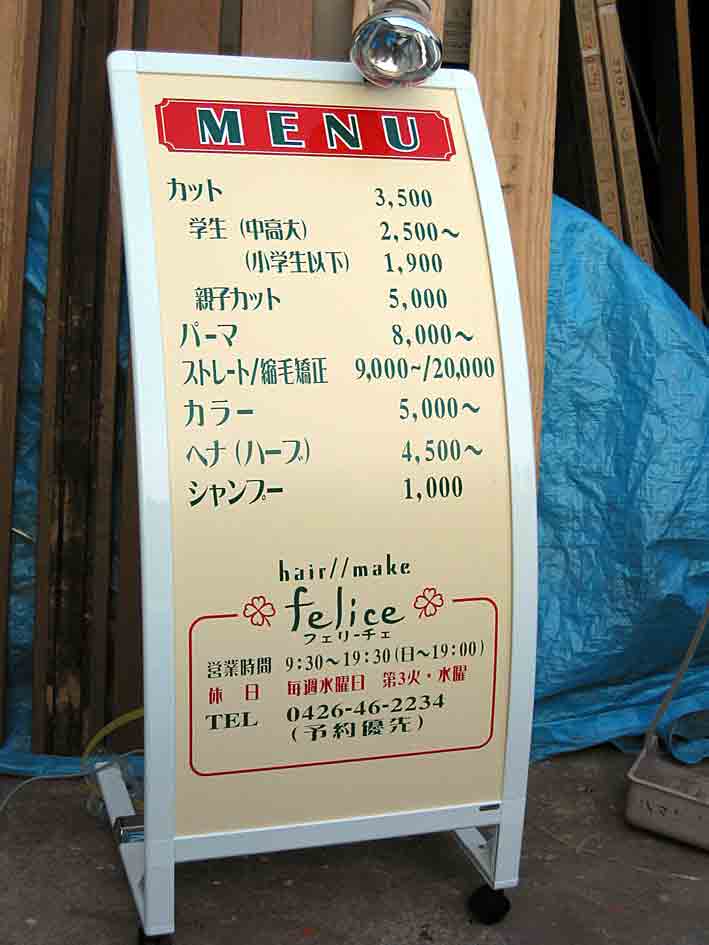 MENU
カット 3,500
学生 (中高大) 2,500～
(小学生以下) 1,900
親子カット 5,000
パーマ 8,000～
ストレート/縮毛矯正 9,000~/20,000
カラー 5,000～
ヘナ (ハーブ) 4,500～
シャンプー 1,000
hair//make
felice
フェリーチェ
営業時間 9:30～19:30(日～19:00)
休日 毎週水曜日 第3火・水曜
TEL 0426-46-2234
(予約優先)